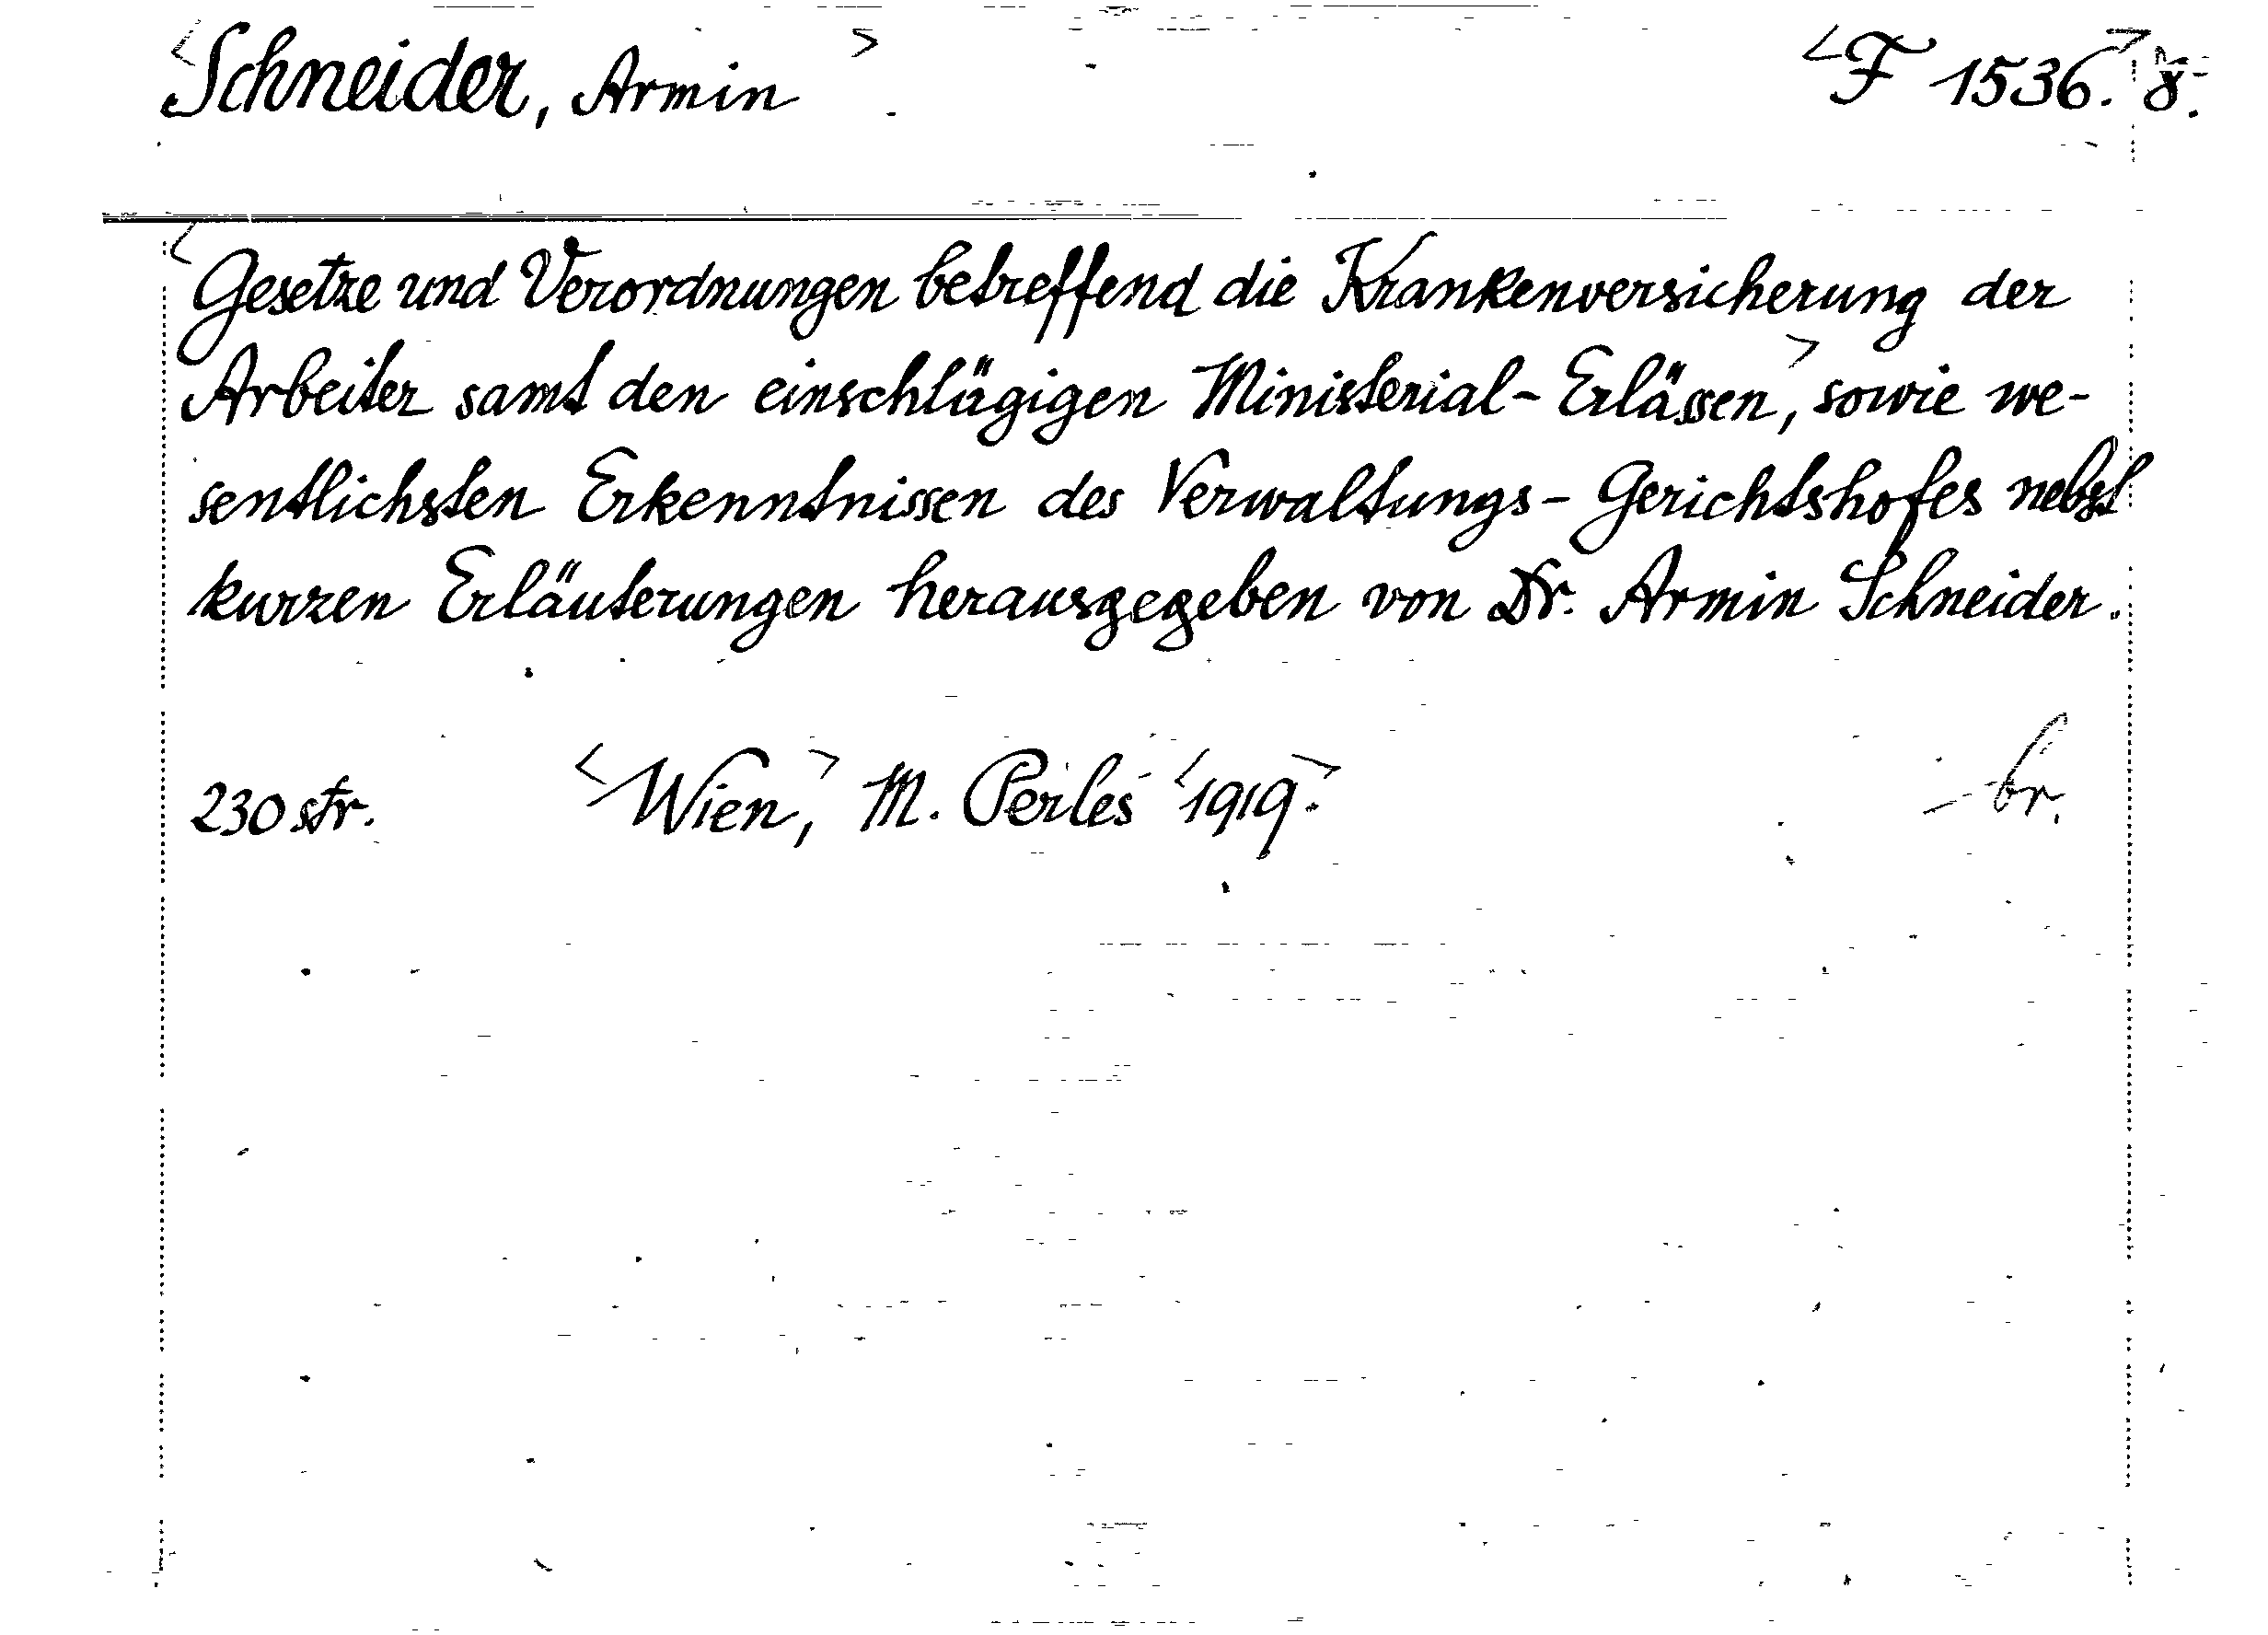 <Schneider, Armin> <F 1536.> 8.
<Gesetze und Verordnungen betreffend die Krankenversicherung der
Arbeiter samt den einschlägigen Ministerial-Erlässen,> sowie we-
sentlichsten Erkenntnissen des Verwaltungs-Gerichtshofes nebst
kurzen Erläuterungen herausgegeben von Dr. Armin Schneider.
230 str. <Wien,> M. Perles <1919.> br.